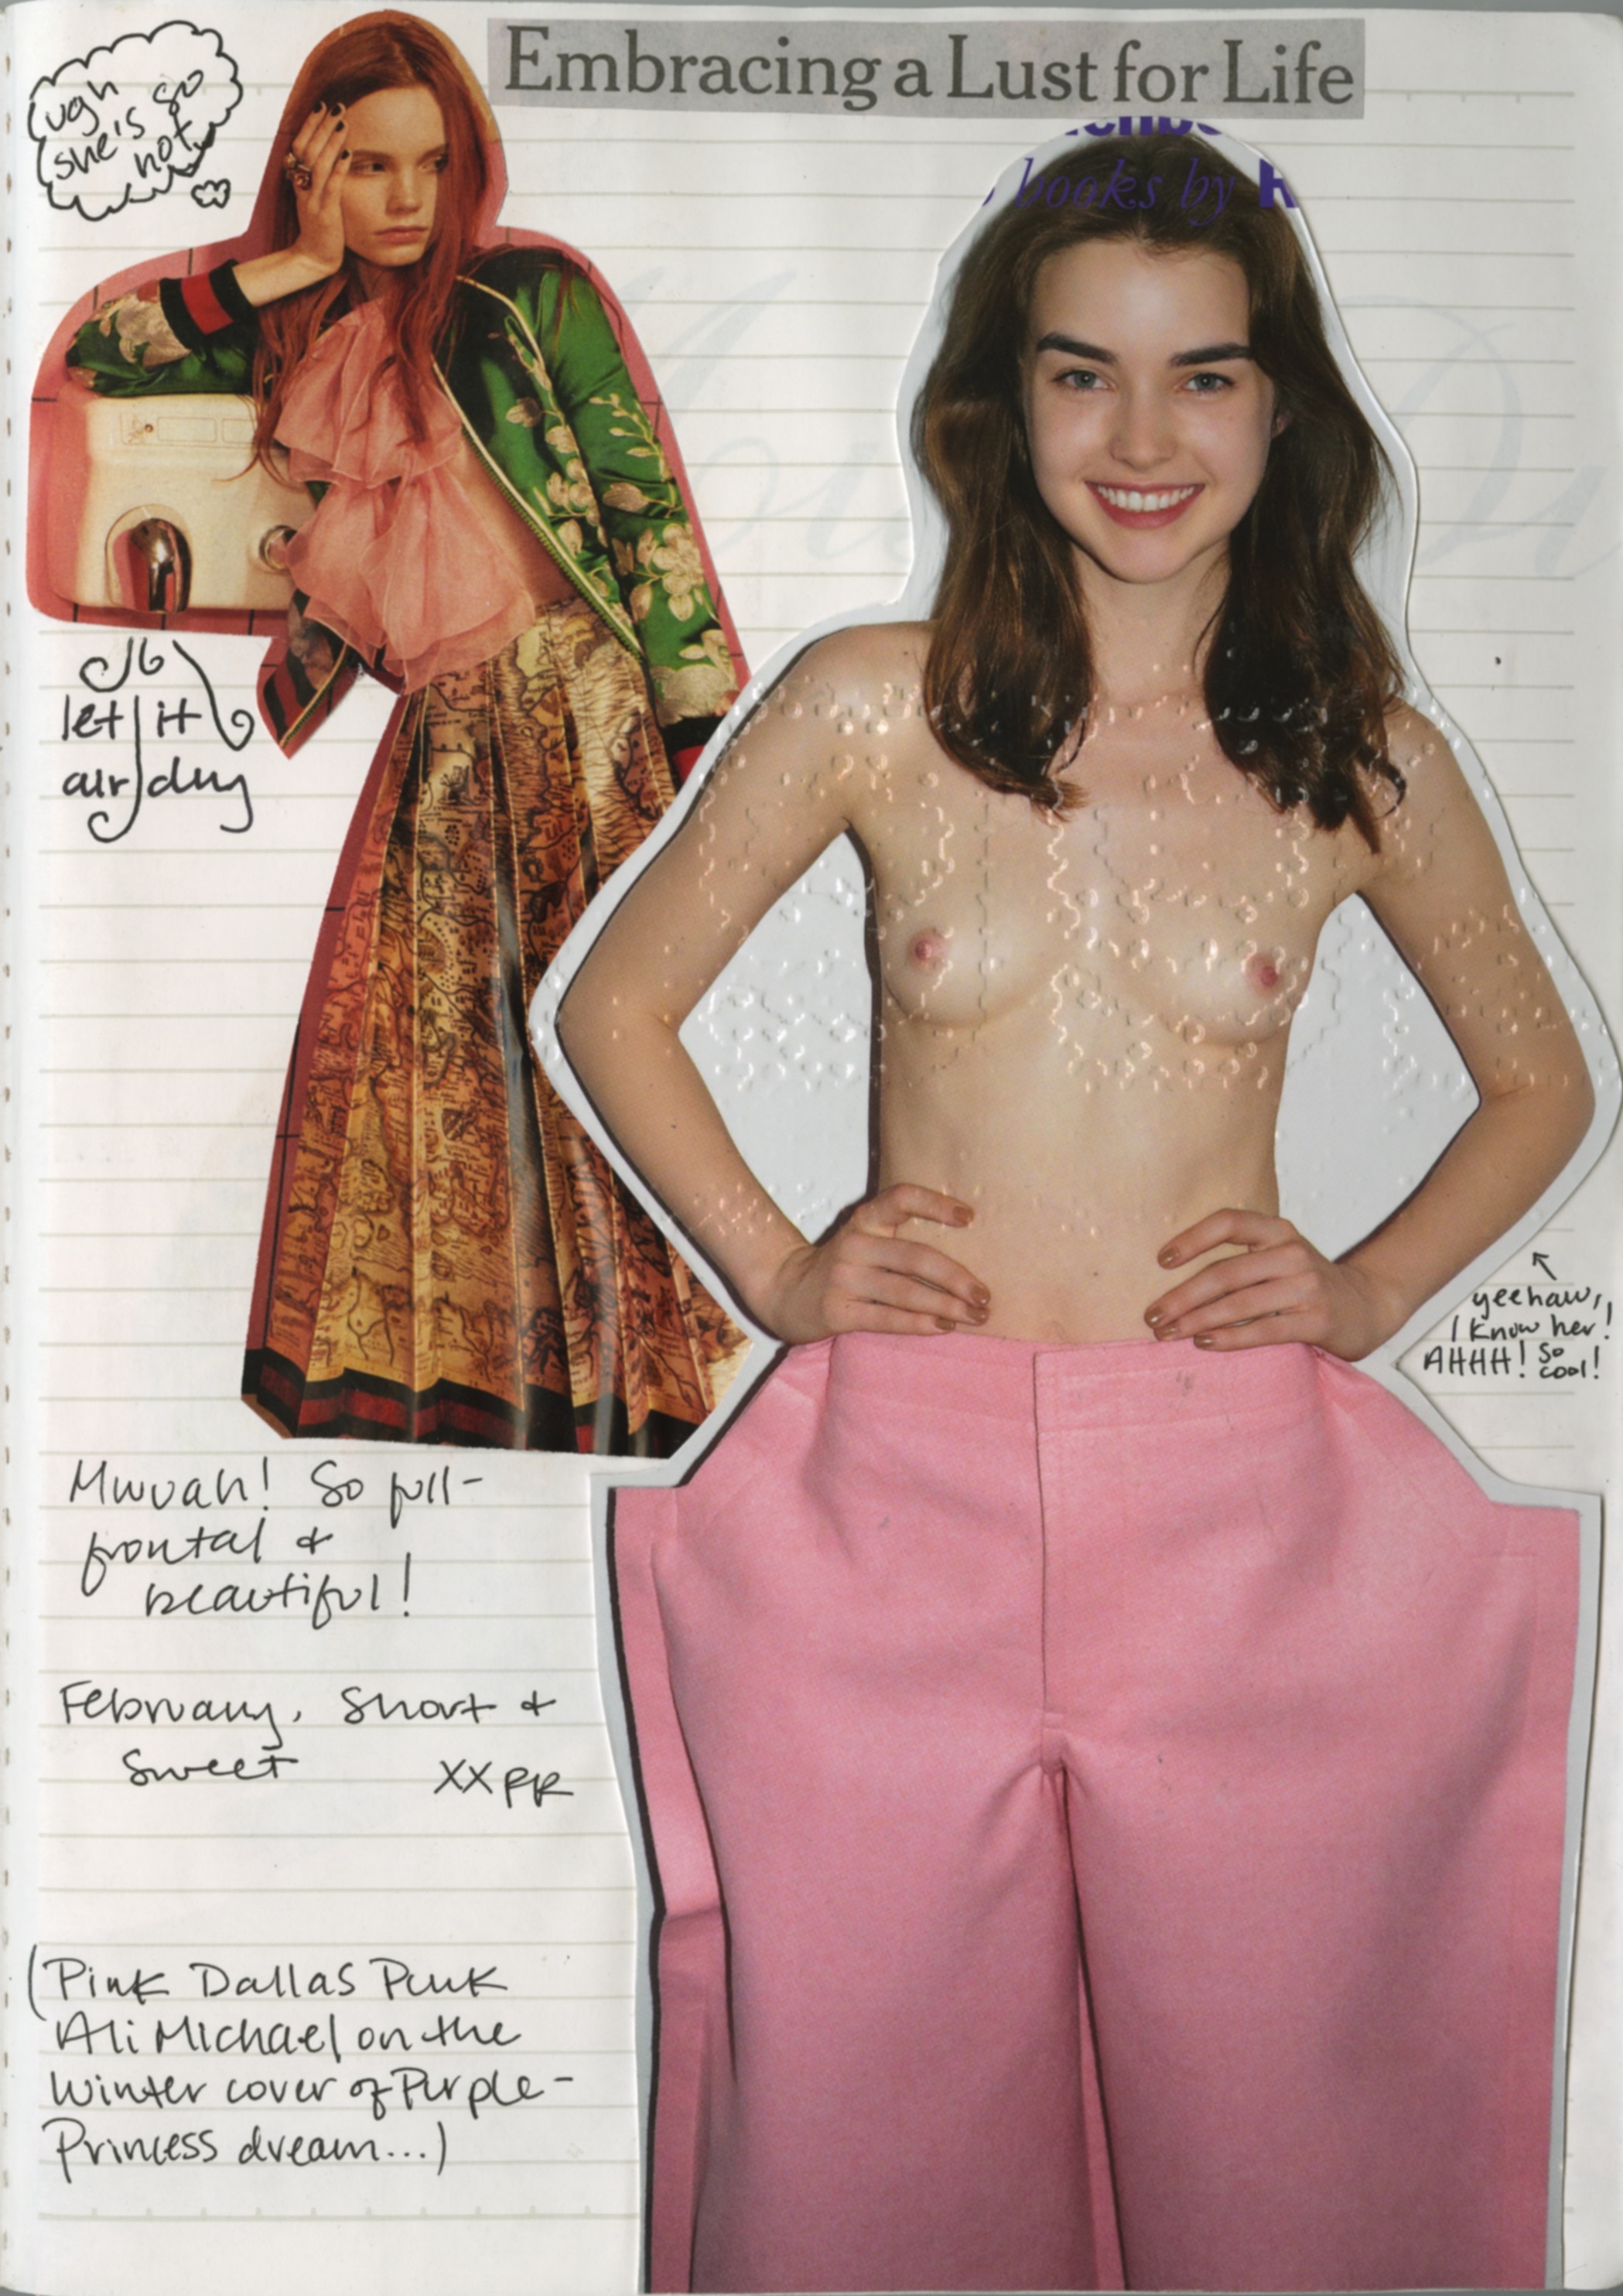 Embracing a Lust for Life
ugh
she's so
hot
books by
let it
air dry
yeehaw,
I know her!
AHHH! So
cool!
Mwuah! So full-
frontal &
beautiful!
February, Short &
Sweet XX PR
(Pink Dallas Punk
Ali Michael on the
Winter cover of Purple-
Princess dream...)